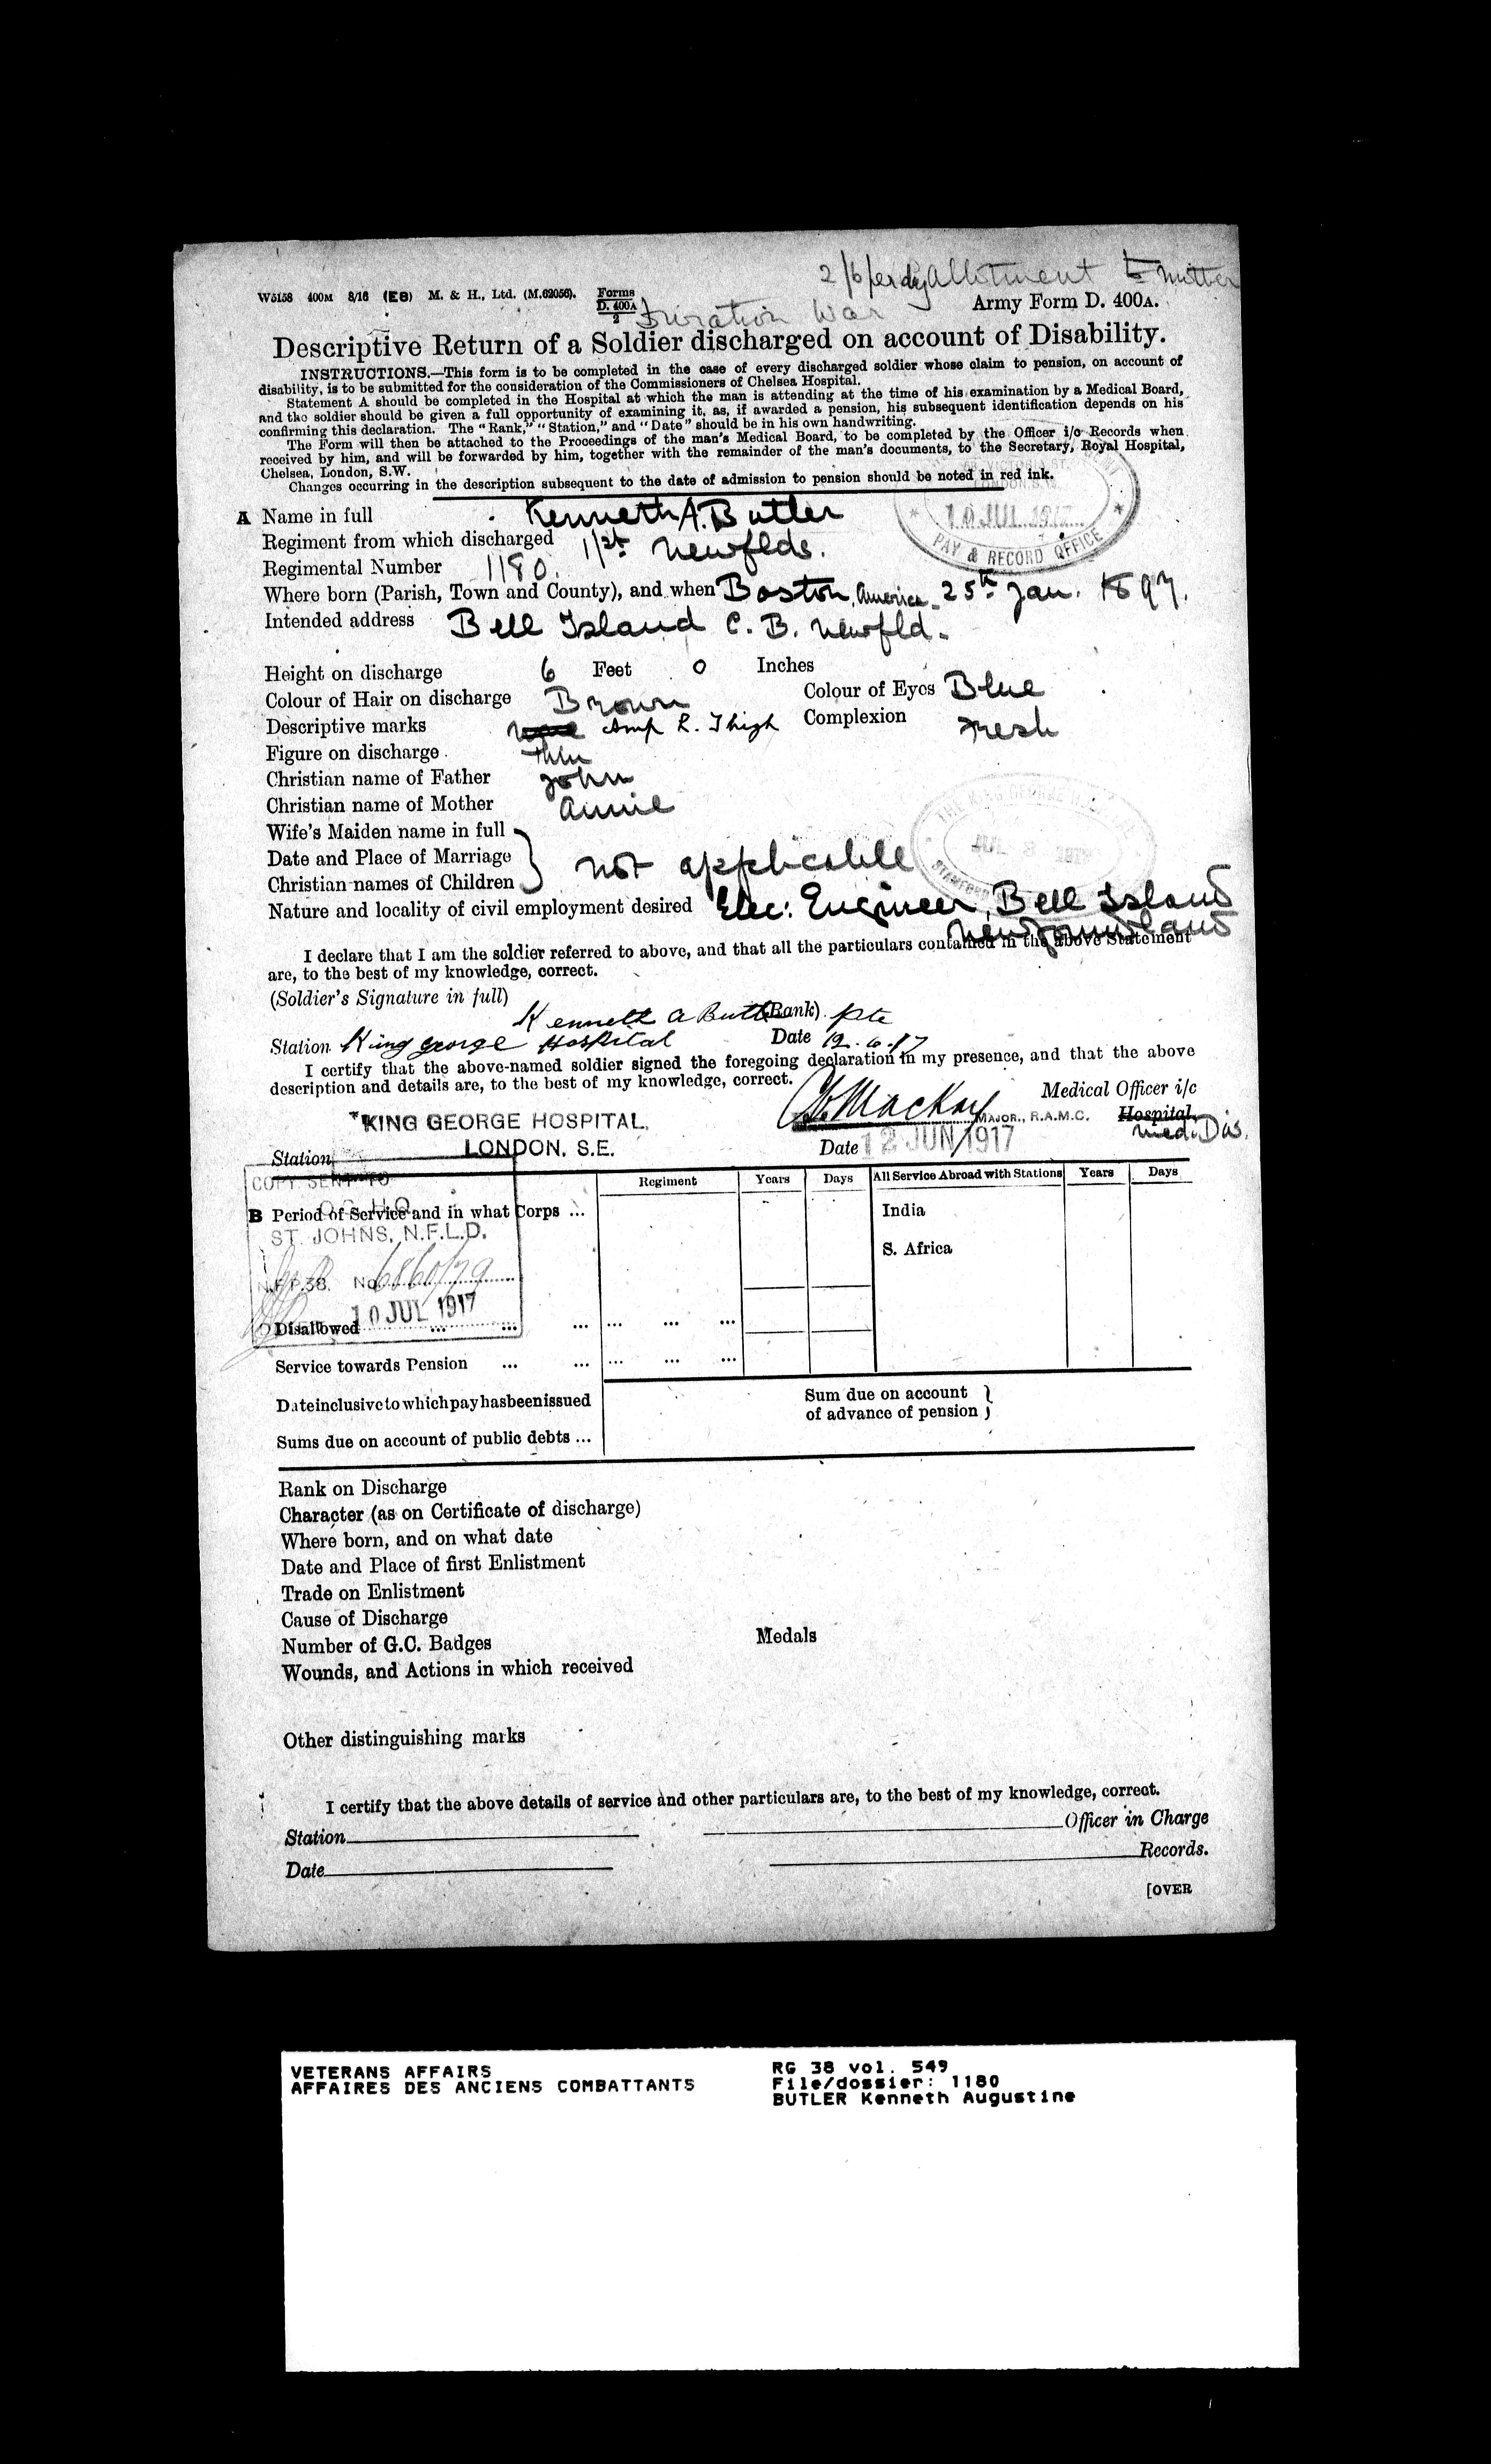 2/6 per dy Allotment to Mother
W5158 400M 8/16 (E8) M. & H., Ltd. (M.62056). Forms D. 400A 2
Duration War
Army Form D. 400A.
Descriptive Return of a Soldier discharged on account of Disability.
INSTRUCTIONS.—This form is to be completed in the case of every discharged soldier whose claim to pension, on account of
disability, is to be submitted for the consideration of the Commissioners of Chelsea Hospital.
Statement A should be completed in the Hospital at which the man is attending at the time of his examination by a Medical Board,
and the soldier should be given a full opportunity of examining it, as, if awarded a pension, his subsequent identification depends on his
confirming this declaration. The "Rank," "Station," and "Date" should be in his own handwriting.
The Form will then be attached to the Proceedings of the man's Medical Board, to be completed by the Officer i/c Records when
received by him, and will be forwarded by him, together with the remainder of the man's documents, to the Secretary, Royal Hospital,
Chelsea, London, S.W.
Changes occurring in the description subsequent to the date of admission to pension should be noted in red ink.
10 JUL 1917
PAY & RECORD OFFICE
A Name in full Kenneth A. Butler
Regiment from which discharged 1/st Newflds.
Regimental Number 1180.
Where born (Parish, Town and County), and when Boston, America. 25th Jan. 1897.
Intended address Bell Island C. B. Newfld.
Height on discharge 6 Feet 0 Inches
Colour of Hair on discharge Brown Colour of Eyes Blue
Descriptive marks None Amp R. Thigh Complexion Fresh
Figure on discharge thin
Christian name of Father John
Christian name of Mother Annie
Wife's Maiden name in full
Date and Place of Marriage
Christian names of Children
not applicable
THE KING GEORGE HOSPITAL
JUL 3
STAMFORD
Nature and locality of civil employment desired Elec: Engineer, Bell Island
Newfoundland
I declare that I am the soldier referred to above, and that all the particulars contained in the above Statement
are, to the best of my knowledge, correct.
(Soldier's Signature in full) Kenneth A Butler (Rank) Pte
Station King George Hospital Date 12.6.17
I certify that the above-named soldier signed the foregoing declaration in my presence, and that the above
description and details are, to the best of my knowledge, correct.
Mackay MAJOR., R.A.M.C. Medical Officer i/c
Hospital.
Med. Dis.
KING GEORGE HOSPITAL,
LONDON. S.E.
Station
Date 12 JUN 1917
COPY SENT TO
O C H Q
ST. JOHNS, N.F.L.D.
N.F.P.38. No 6860/79
10 JUL 1917
Regiment Years Days All Service Abroad with Stations Years Days
B Period of Service and in what Corps ...
India
S. Africa
Disallowed ... ... ... ... ... ...
Service towards Pension ... ... ... ... ...
Date inclusive to which pay has been issued
Sum due on account
of advance of pension
Sums due on account of public debts ...
Rank on Discharge
Character (as on Certificate of discharge)
Where born, and on what date
Date and Place of first Enlistment
Trade on Enlistment
Cause of Discharge
Number of G.C. Badges Medals
Wounds, and Actions in which received
Other distinguishing marks
I certify that the above details of service and other particulars are, to the best of my knowledge, correct.
Station Officer in Charge
Date Records.
[OVER
VETERANS AFFAIRS
AFFAIRES DES ANCIENS COMBATTANTS
RG 38 vol. 549
File/dossier: 1180
BUTLER Kenneth Augustine